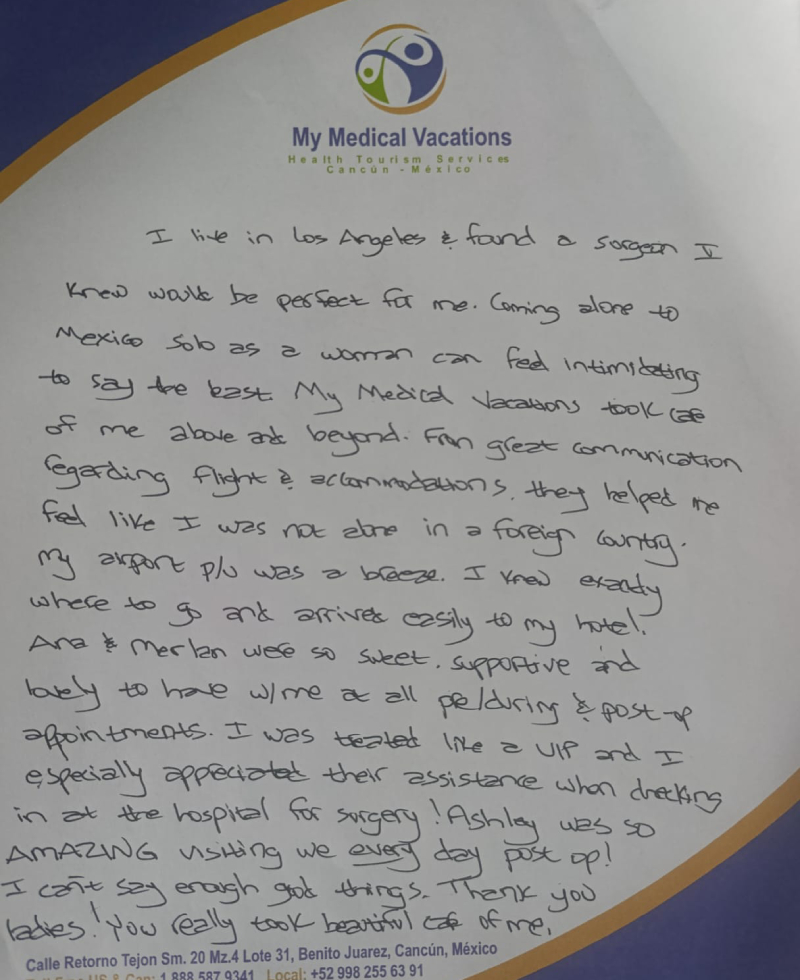 My Medical Vacations
Health Tourism Services
Cancún - México
I live in Los Angeles & found a surgeon I
knew would be perfect for me. Coming alone to
Mexico solo as a woman can feel intimidating
to say the least. My Medical Vacations took care
of me above and beyond. From great communication
regarding flight & accommodations, they helped me
feel like I was not alone in a foreign country.
My airport p/u was a breeze. I knew exactly
where to go and arrived easily to my hotel.
Ana & were so sweet, supportive and
lovely to have w/me at all pre/during & post-op
appointments. I was treated like a VIP and I
especially appreciated their assistance when checking
in at the hospital for surgery! Ashley was so
AMAZING visiting me every day post op!
I can't say enough good things. Thank you
ladies! You really took beautiful care of me.
Calle Retorno Tejon Sm. 20 Mz.4 Lote 31, Benito Juarez, Cancún, México
US & Can: 1 888 587 9341 Local: +52 998 255 63 91